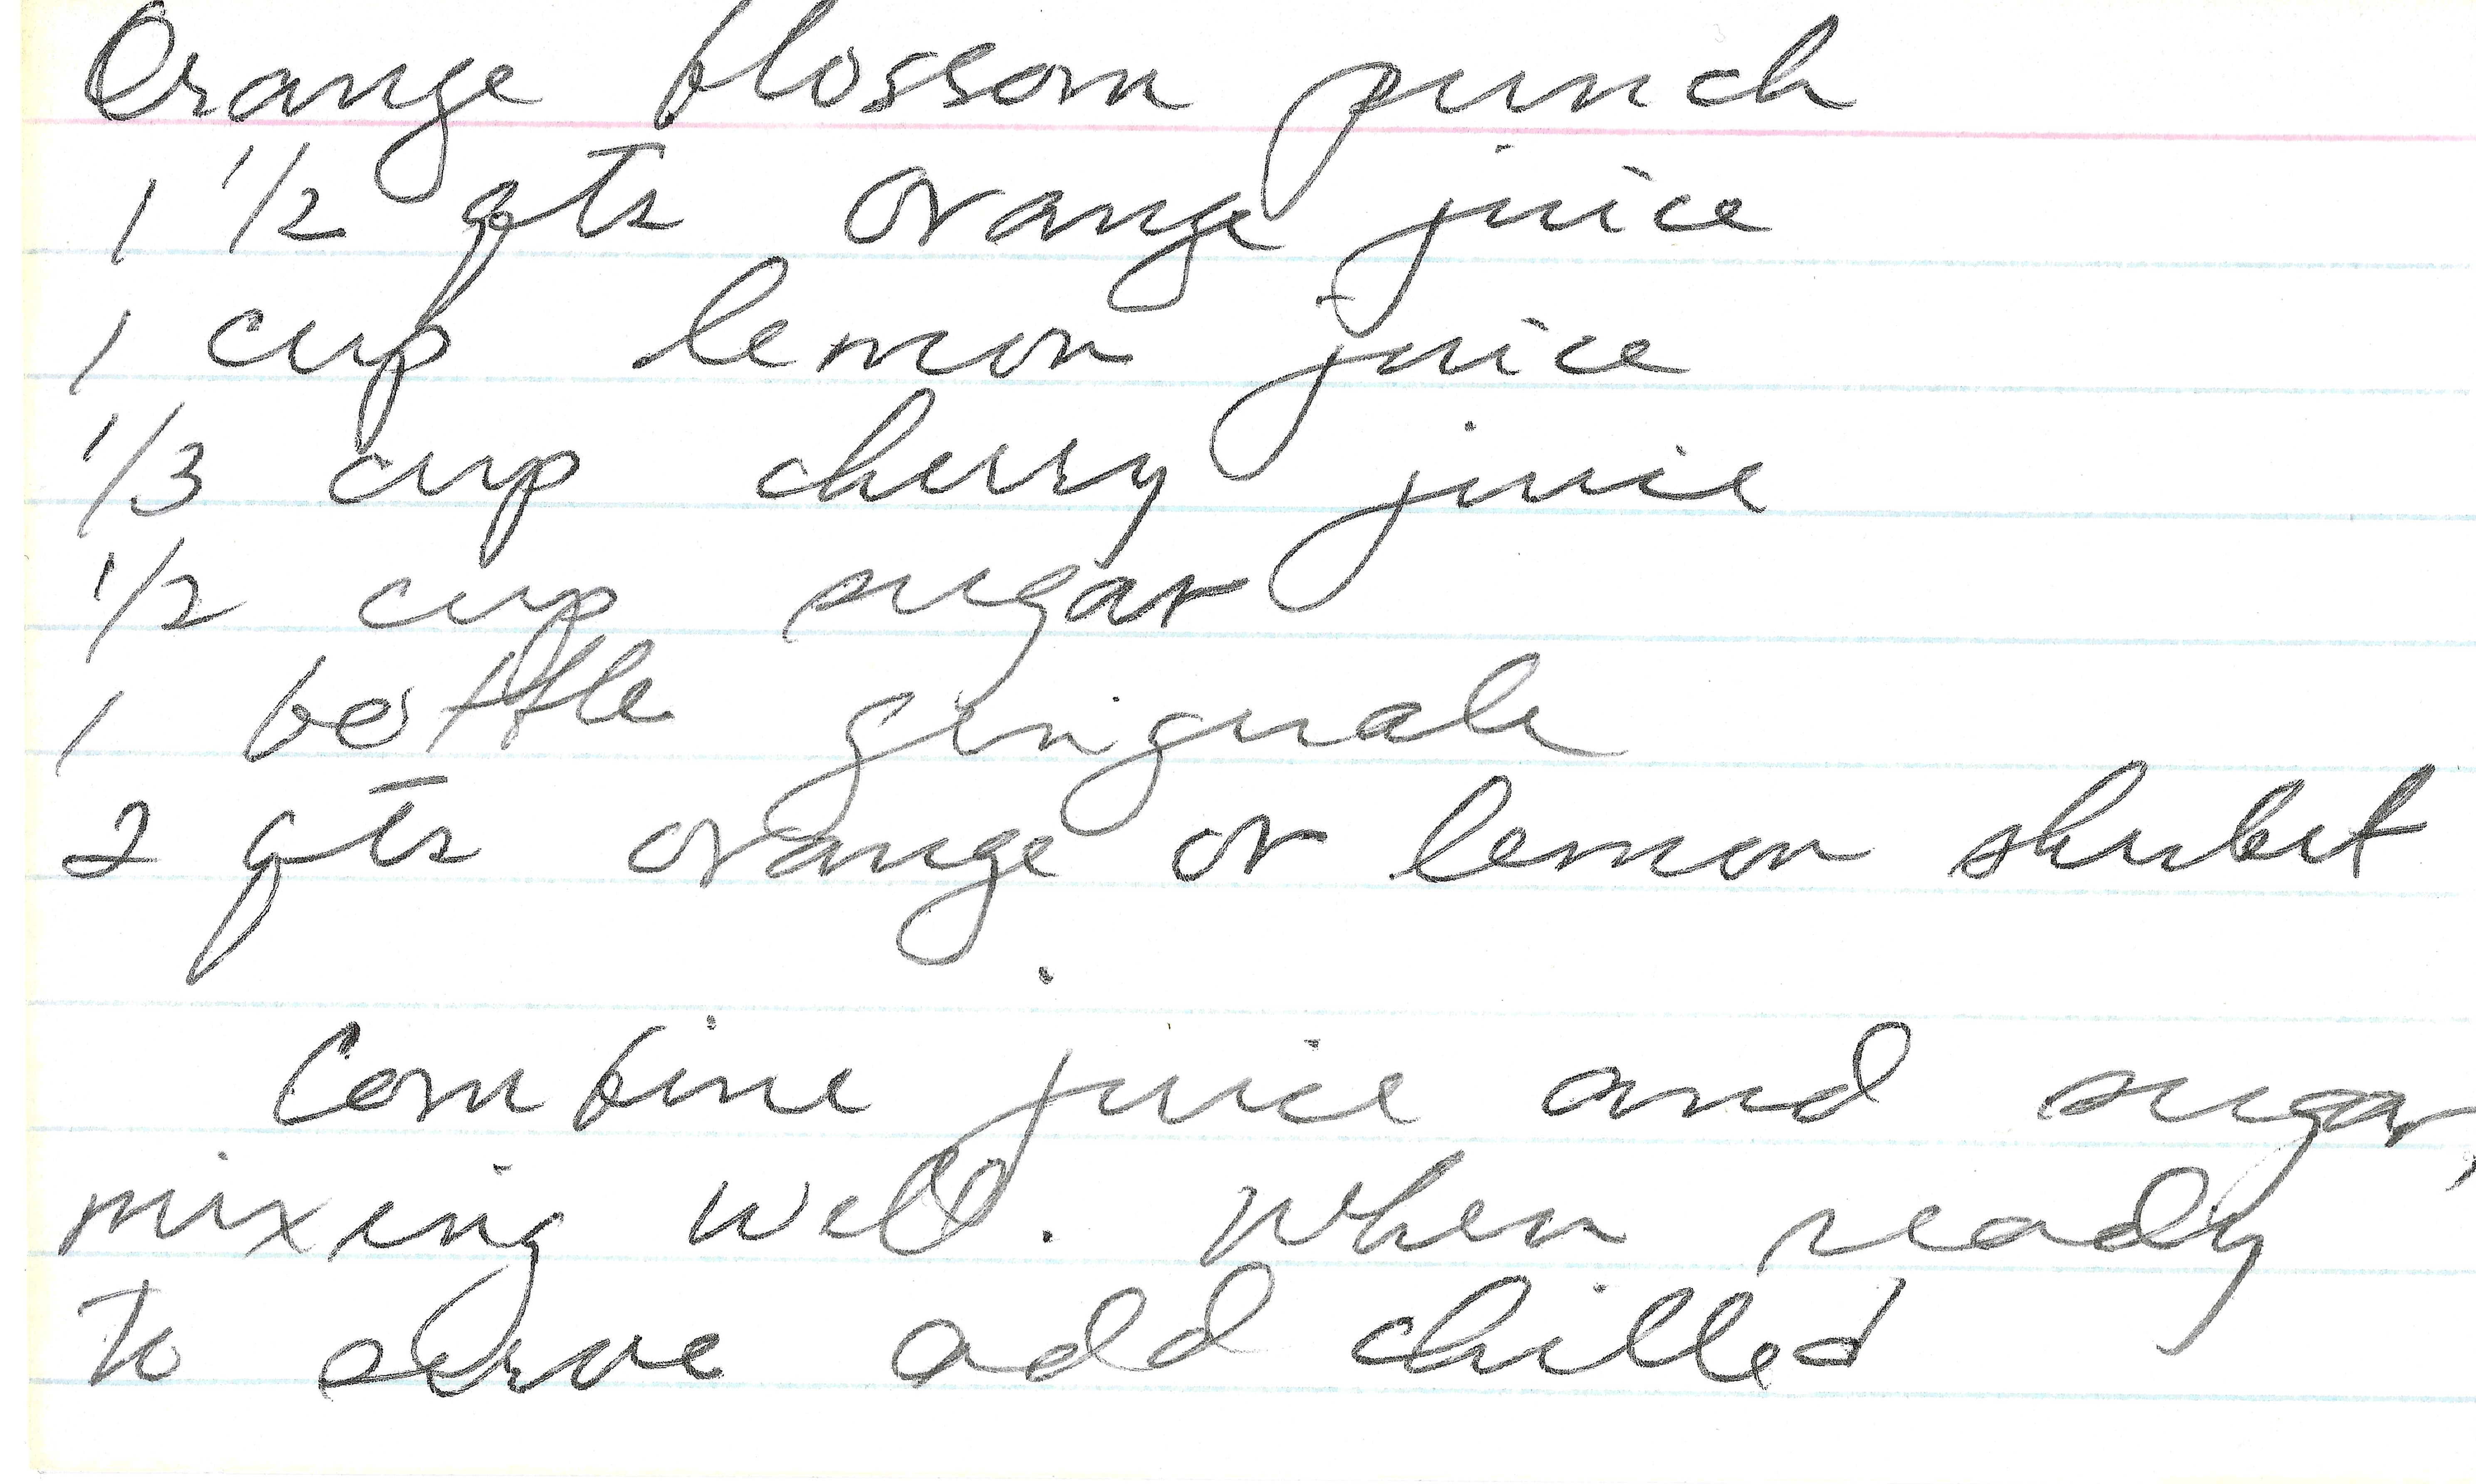 Orange blossom punch
1 1/2 qts orange juice
1 cup lemon juice
1/3 cup cherry juice
1/2 cup sugar
1 bottle gingerale
2 qts orange or lemon sherbert
Combine juice and sugar,
mixing well. When ready
to serve add chilled